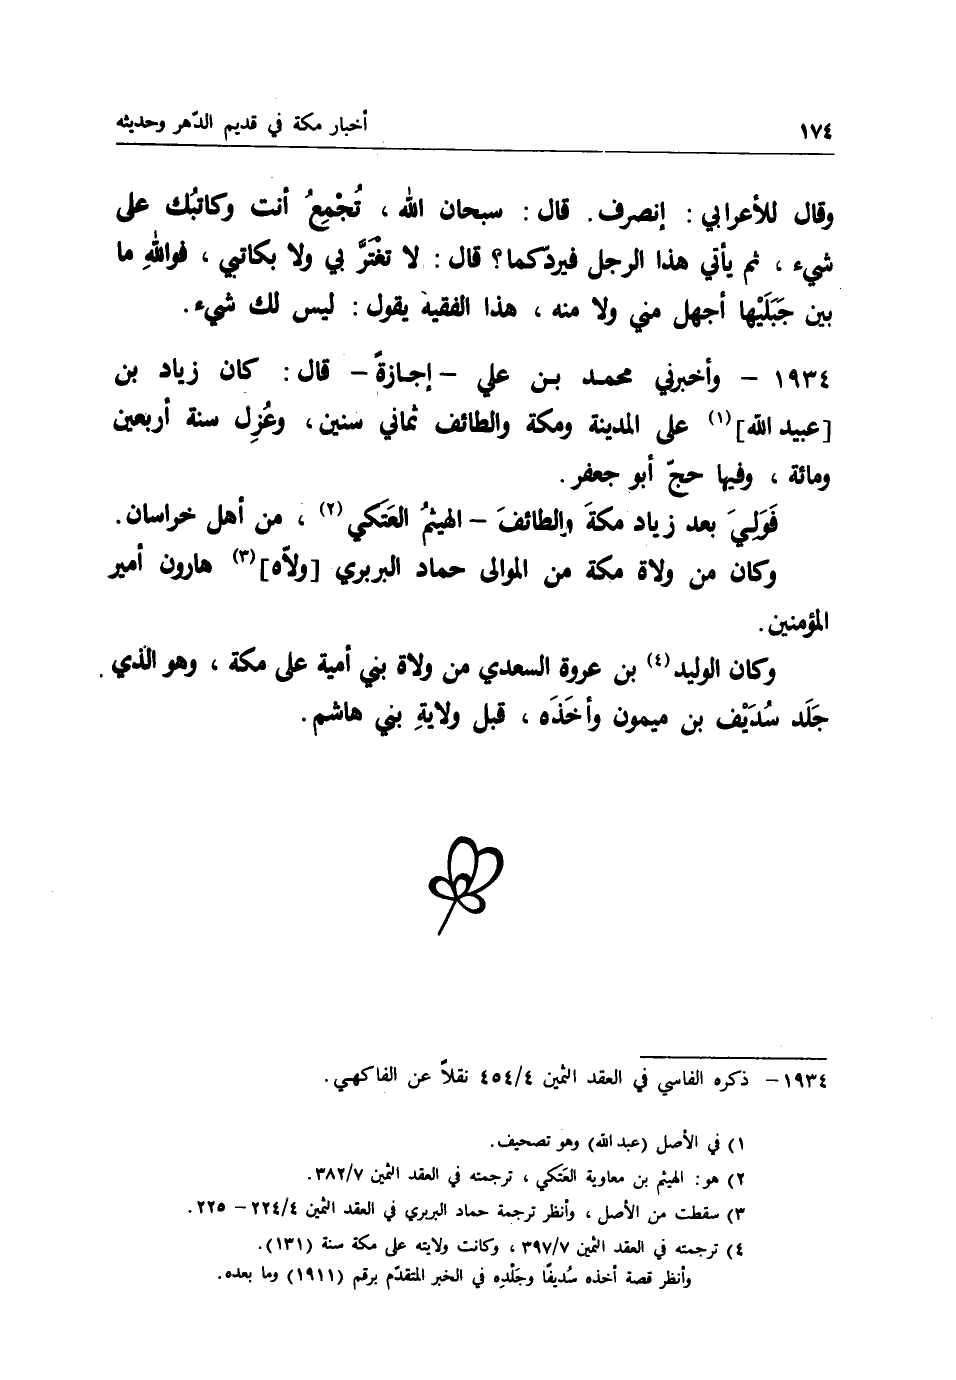 ١٧٤ أخبار مكة في قديم الدّهر وحديثه
وقال للأعرابي : إنصرف . قال : سبحان الله ، تُجْمِعُ أنت وكاتبُك على
شيء ، ثم يأتي هذا الرجل فيردّكما؟ قال : لا تغْتَرَّ بي ولا بكاتبي ، فواللهِ ما
بين جَبَلَيْها أجهل مني ولا منه ، هذا الفقيه يقول : ليس لك شيء .
١٩٣٤ – وأخبرني محمد بن علي – إجازةً – قال : كان زياد بن
[عبيد الله](١) على المدينة ومكة والطائف ثماني سنين ، وعُزِل سنة أربعين
ومائة ، وفيها حجّ أبو جعفر .
فَوَلِيَ بعد زياد مكةَ والطائفَ – الهيثمُ العَتَكي(٢) ، من أهل خراسان .
وكان من ولاة مكة من الموالى حماد البربري [ولاّه](٣) هارون أمير
المؤمنين .
وكان الوليد(٤) بن عروة السعدي من ولاة بني أمية على مكة ، وهو الذي
جَلَد سُدَيْف بن ميمون وأخَذَه ، قبل ولايةِ بني هاشم .
١٩٣٤ – ذكره الفاسي في العقد الثمين ٤٥٤/٤ نقلاً عن الفاكهي .
١) في الأصل (عبد الله) وهو تصحيف .
٢) هو : الهيثم بن معاوية العَتَكي ، ترجمته في العقد الثمين ٣٨٢/٧ .
٣) سقطت من الأصل ، وأنظر ترجمة حماد البربري في العقد الثمين ٢٢٤/٤ – ٢٢٥ .
٤) ترجمته في العقد الثمين ٣٩٧/٧ ، وكانت ولايته على مكة سنة (١٣١) .
وأنظر قصة أخذه سُديفًا وجَلْدِه في الخبر المتقدّم برقم (١٩١١) وما بعده .